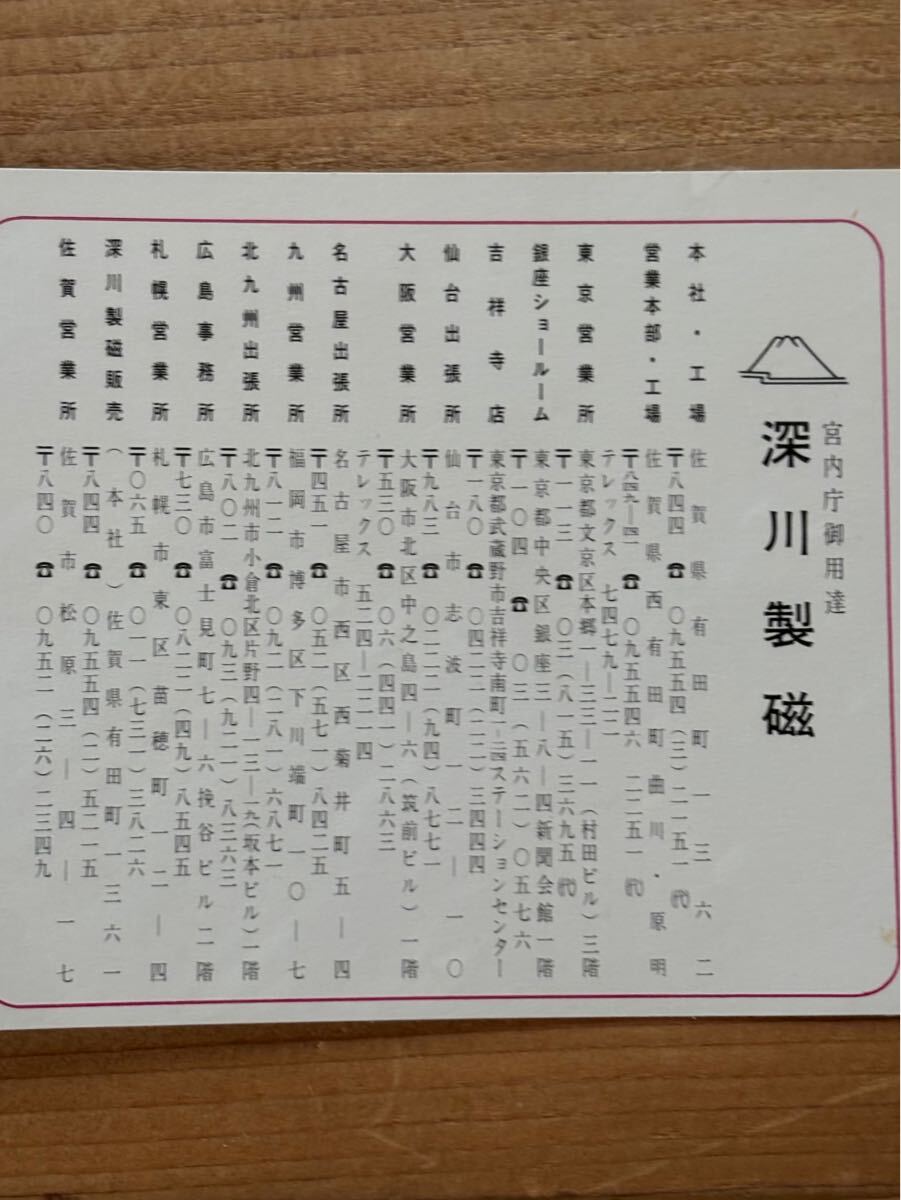 宮内庁御用達
深川製磁
本社・工場 佐賀県有田町一三六二
〒八四四 ☎ 〇九五五四(三)二一五一㈹
営業本部・工場 佐賀県西有田町曲川・原明
〒八四九—四一 ☎ 〇九五五四六 二二五一㈹
テレックス 七四七九—二二
東京営業所 東京都文京区本郷一—三三—一一(村田ビル)三階
〒一一三 ☎ 〇三(八一五)三六九五㈹
銀座ショールーム 東京都中央区銀座三—八—四新聞会館一階
〒一〇四 ☎ 〇三(五六二)〇五七六
吉祥寺店 東京都武蔵野市吉祥寺南町一—二四ステーションセンター
〒一八〇 ☎ 〇四二二(二二)三四四四
仙台出張所 仙台市志波町一二—一〇
〒九八三 ☎ 〇二二二(九四)八七七一
大阪営業所 大阪市北区中之島四—六(筑前ビル)一階
〒五三〇 ☎ 〇六(四四一)二八六三
テレックス 五二四—二二一四
名古屋出張所 名古屋市西区西菊井町五—四
〒四五一 ☎ 〇五二(五七一)八四二五
九州営業所 福岡市博多区下川端町一〇—七
〒八一二 ☎ 〇九二(二八一)六八七一
北九州出張所 北九州市小倉北区片野四—一三—一九(坂本ビル)一階
〒八〇二 ☎ 〇九三(九二一)八三六三
広島事務所 広島市富士見町七—六挽谷ビル二階
〒七三〇 ☎ 〇八二二(四九)八五四五
札幌営業所 札幌市東区苗穂町一二—四
〒〇六五 ☎ 〇一一(七三一)三八二六
深川製磁販売 (本社)佐賀県有田町一三六一
〒八四四 ☎ 〇九五五四(二)五二一五
佐賀営業所 佐賀市松原三—四—一七
〒八四〇 ☎ 〇九五二(二六)二三四九